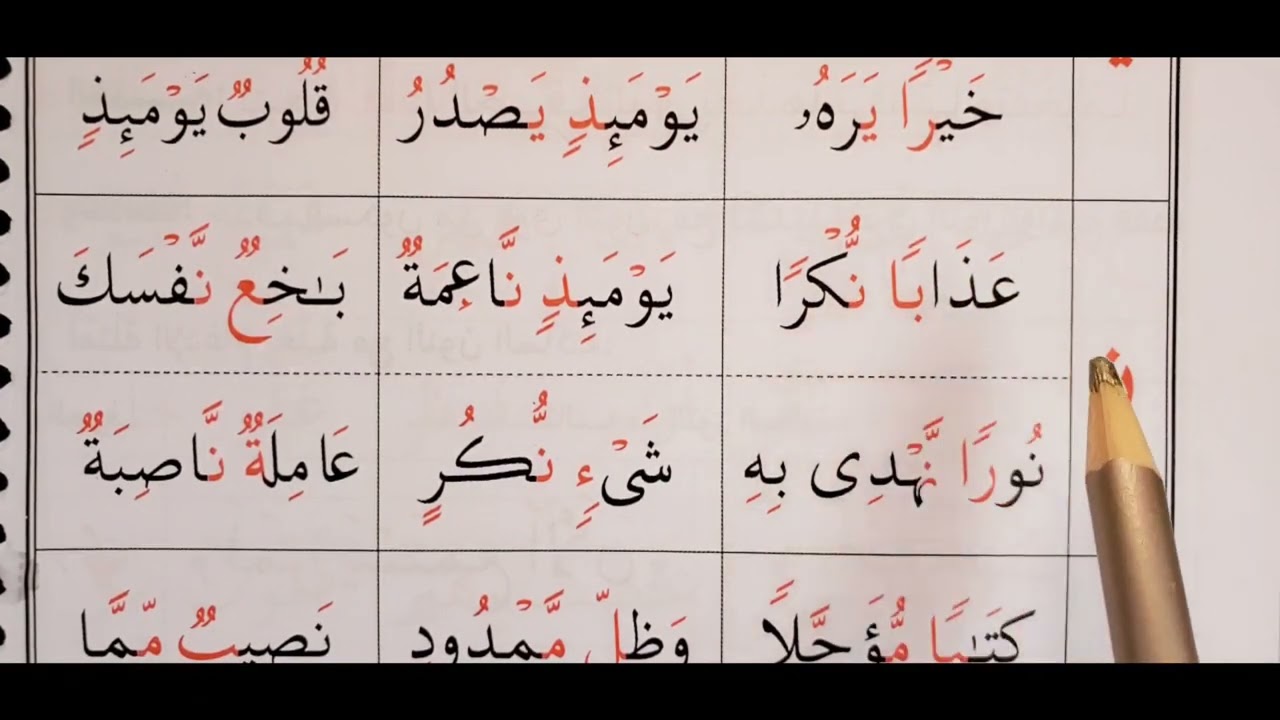 خَيْرًا يَرَهُۥ يَوْمَئِذٍ يَصْدُرُ قُلُوبٌ يَوْمَئِذٍ
عَذَابًا نُّكْرًا يَوْمَئِذٍ نَّاعِمَةٌ بَـٰخِعٌ نَّفْسَكَ
ن
نُورًا نَّهْدِى بِهِ شَىْءٍ نُّكُرٍ عَامِلَةٌ نَّاصِبَةٌ
كِتَـٰبًا مُّؤَجَّلاً وَظِلٍّ مَّمْدُودٍ نَصِيبٌ مِّمَّا